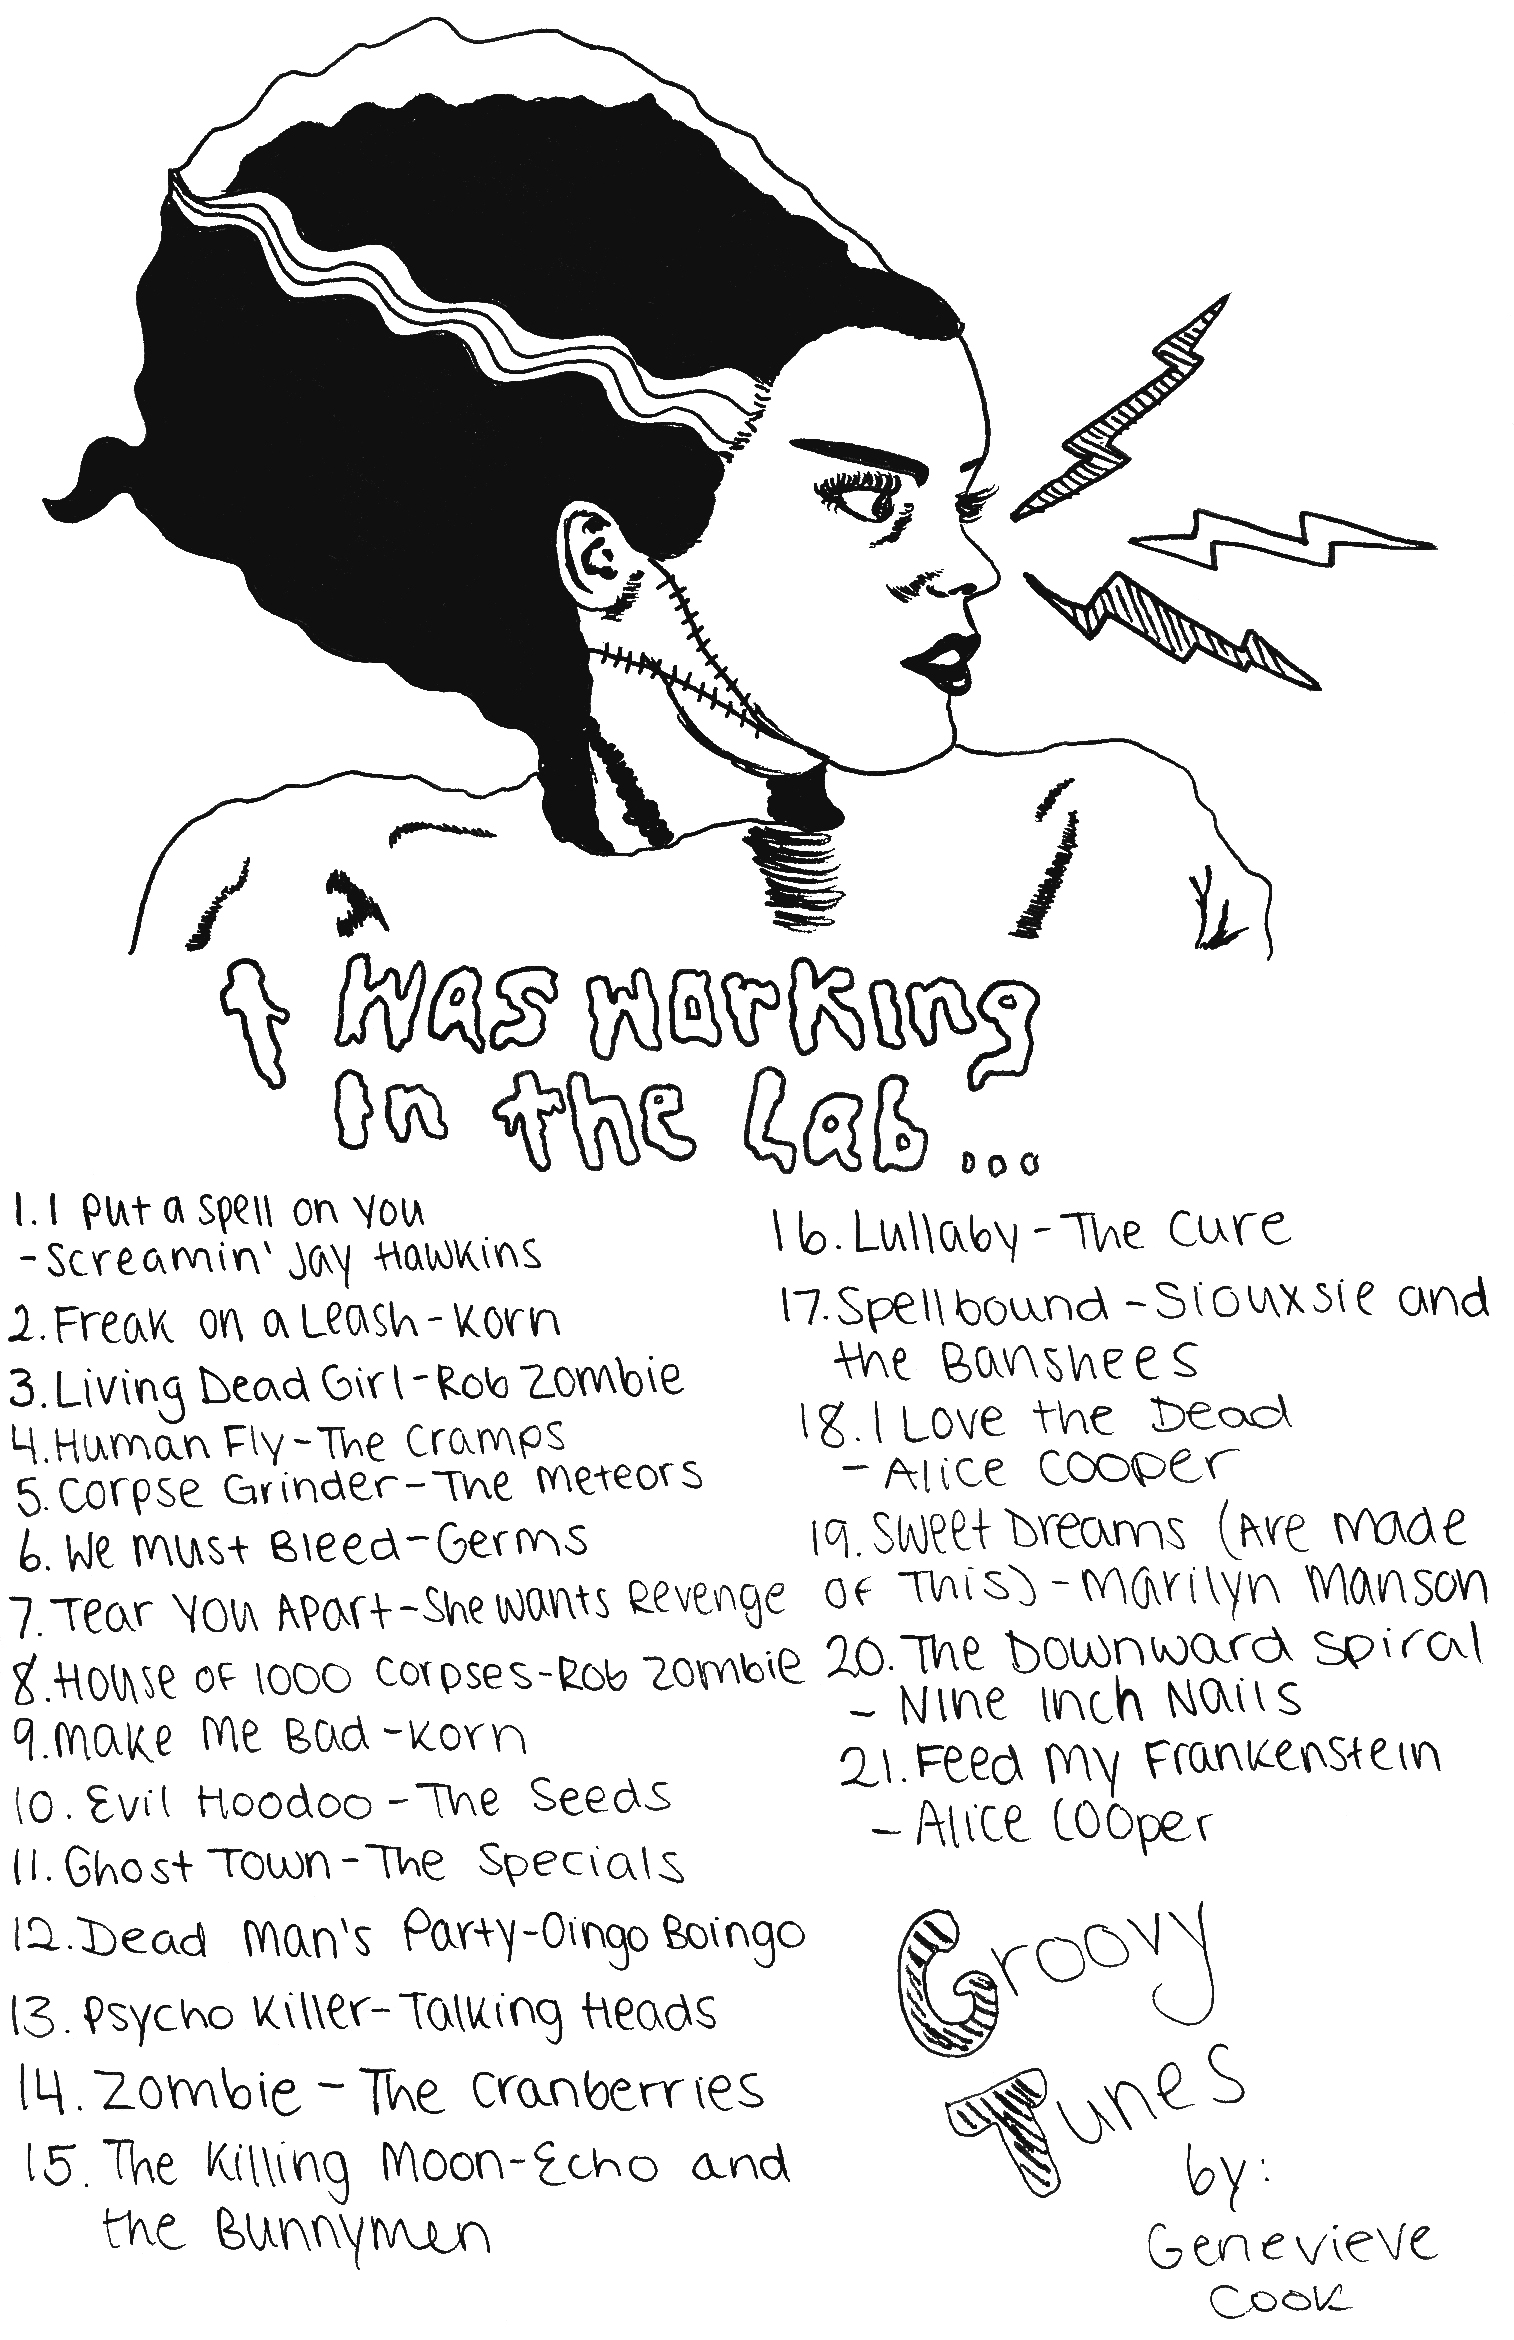 I was working
in the Lab...
1. I put a spell on you
- Screamin' Jay Hawkins
2. Freak on a Leash - Korn
3. Living Dead Girl - Rob Zombie
4. Human Fly - The Cramps
5. Corpse Grinder - The Meteors
6. We must Bleed - Germs
7. Tear You Apart - She Wants Revenge
8. House of 1000 Corpses - Rob Zombie
9. Make Me Bad - Korn
10. Evil Hoodoo - The Seeds
11. Ghost Town - The Specials
12. Dead Man's Party - Oingo Boingo
13. Psycho Killer - Talking Heads
14. Zombie - The Cranberries
15. The Killing Moon - Echo and
the Bunnymen
16. Lullaby - The Cure
17. Spellbound - Siouxsie and
the Banshees
18. I Love the Dead
- Alice Cooper
19. Sweet Dreams (Are made
of This) - Marilyn Manson
20. The Downward Spiral
- Nine Inch Nails
21. Feed My Frankenstein
- Alice Cooper
Groovy
Tunes
by:
Genevieve
Cook